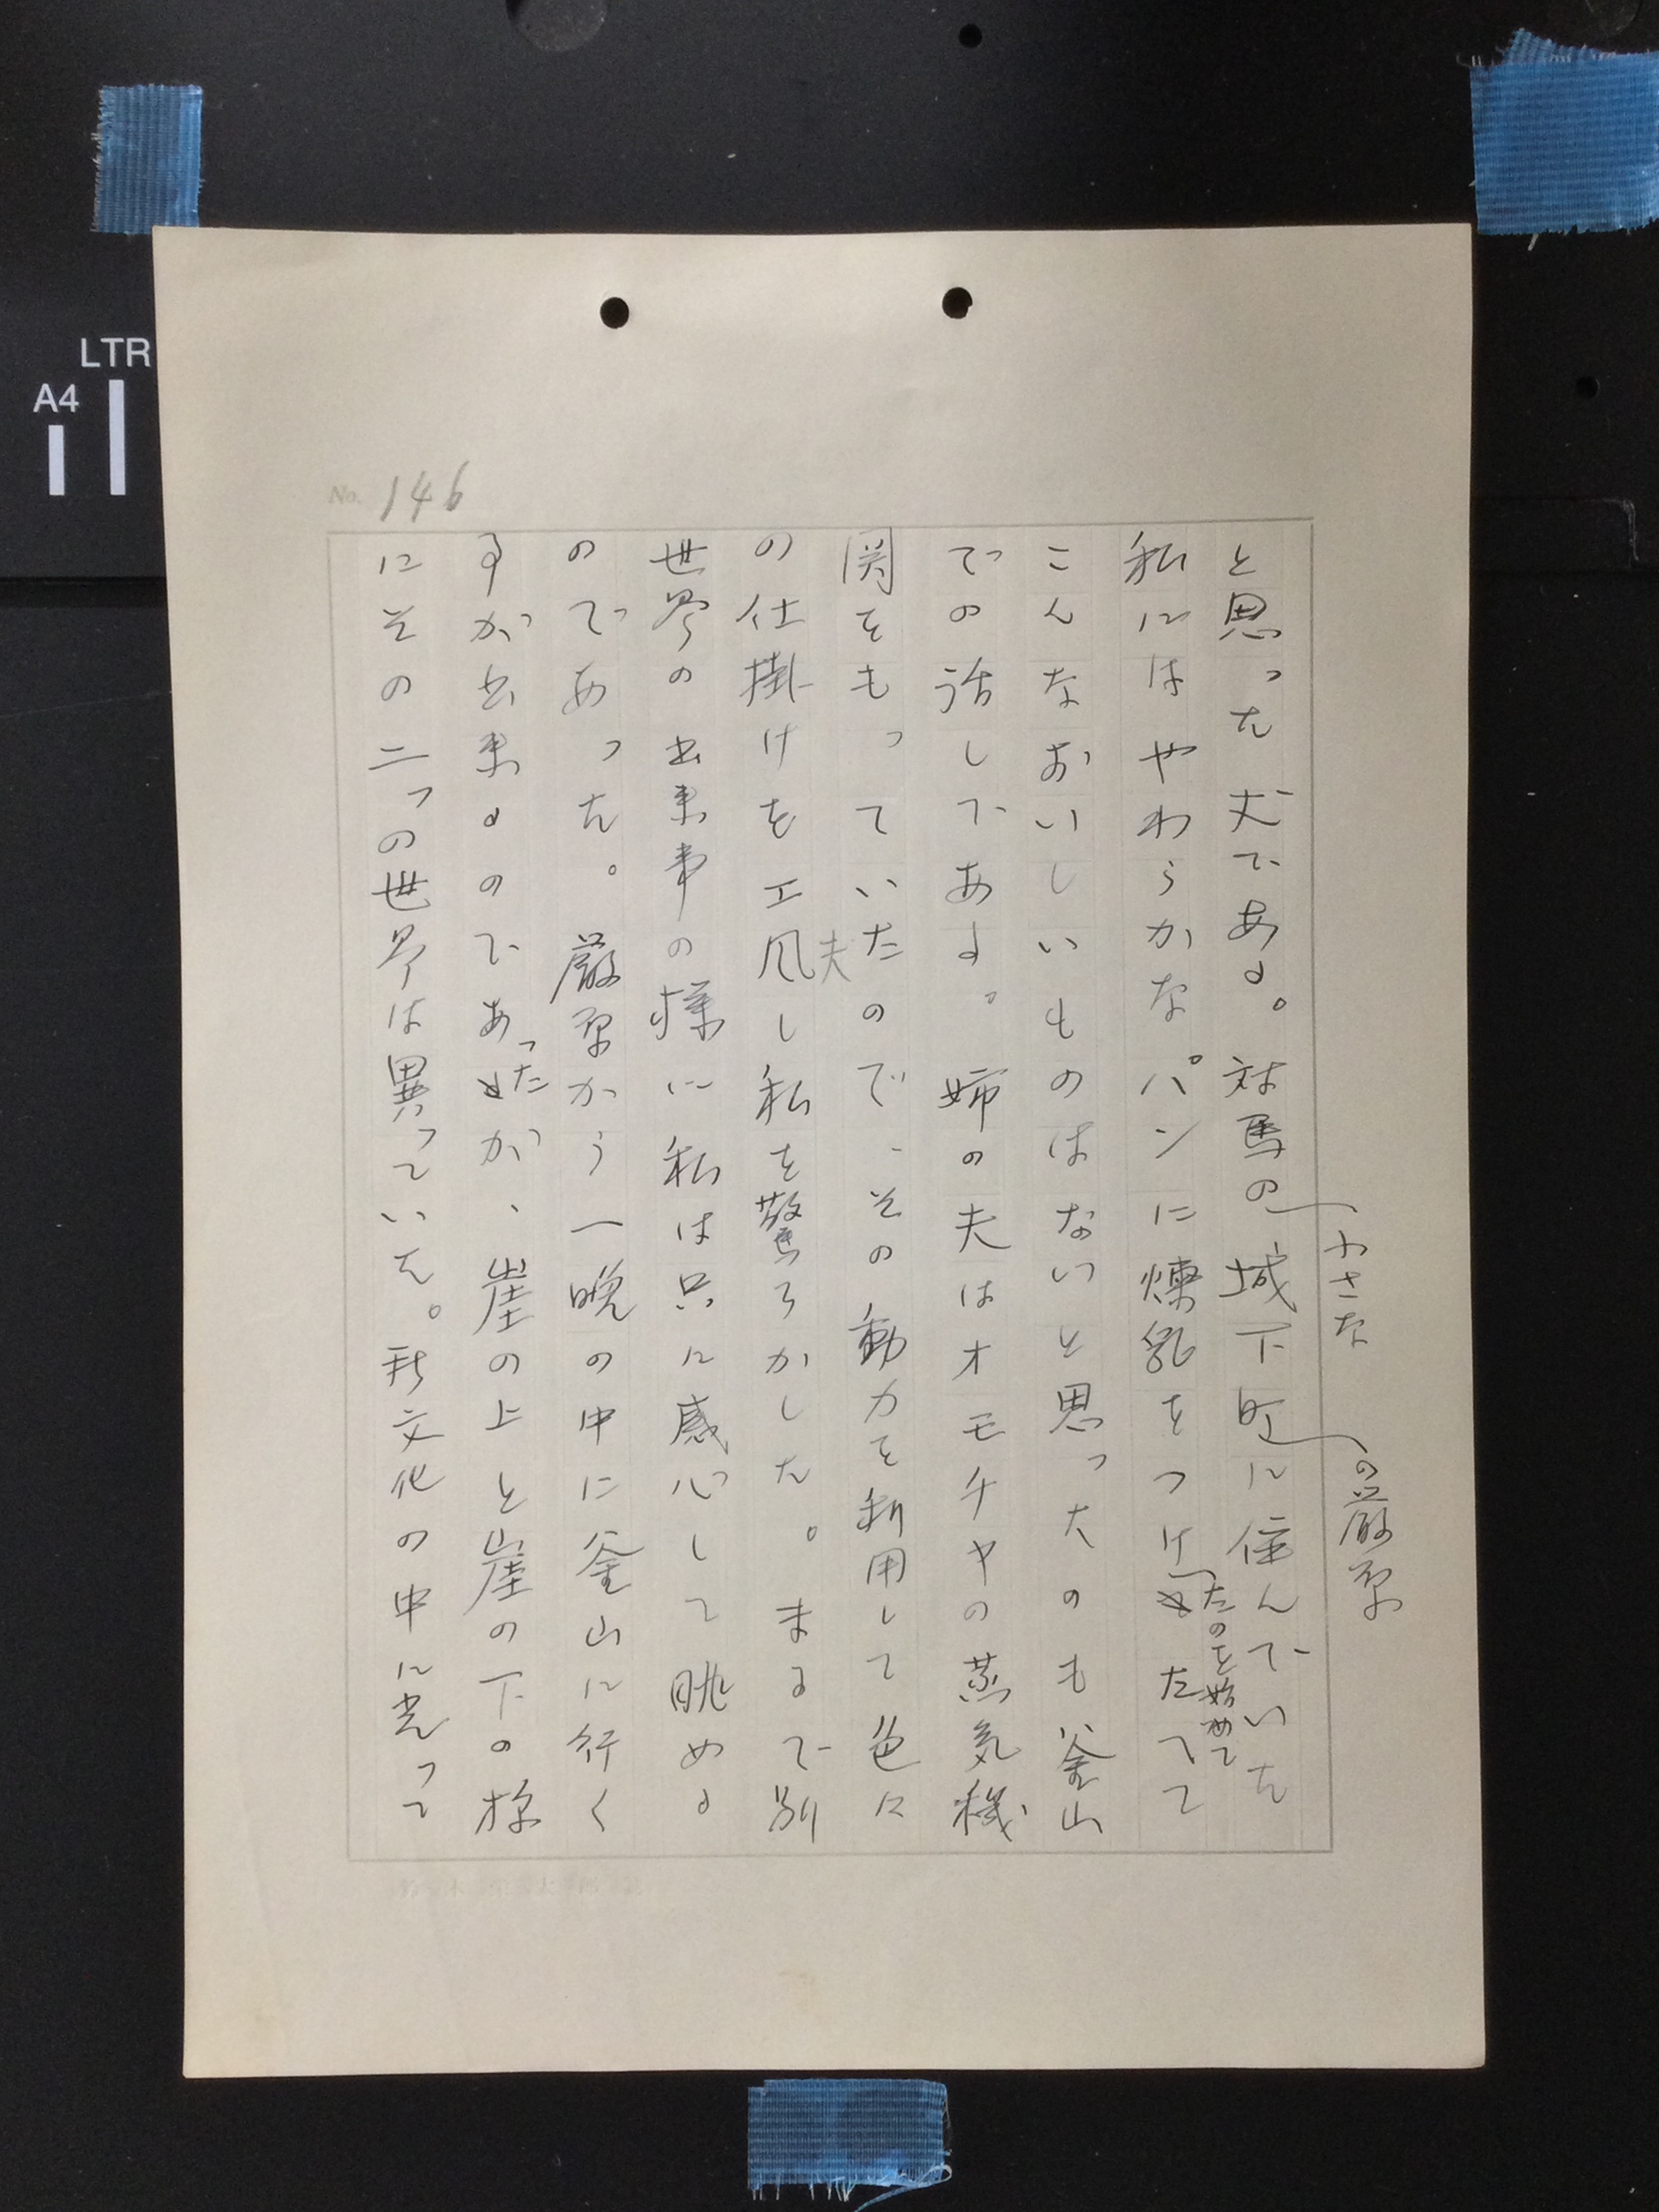 No. 146
と思った丈である。対馬の小さな城下町の厳原に住んでいた
私にはやわらかなパンに煉乳をつけたのを始めてたべて
こんなおいしいものはないと思ったのも釜山
での話しである。姉の夫はオモチヤの蒸気機
関をもっていたので、その動力を利用して色に
の仕掛けを工夫し私を驚ろかした。まるで別
世界の出来事の様に私は只に感心して眺める
のであった。厳原から一晩の中に釜山に行く
事が出来るのであったが、崖の上と崖の下の様
にその二つの世界は異っていた。新文化の中に光って
A4
LTR